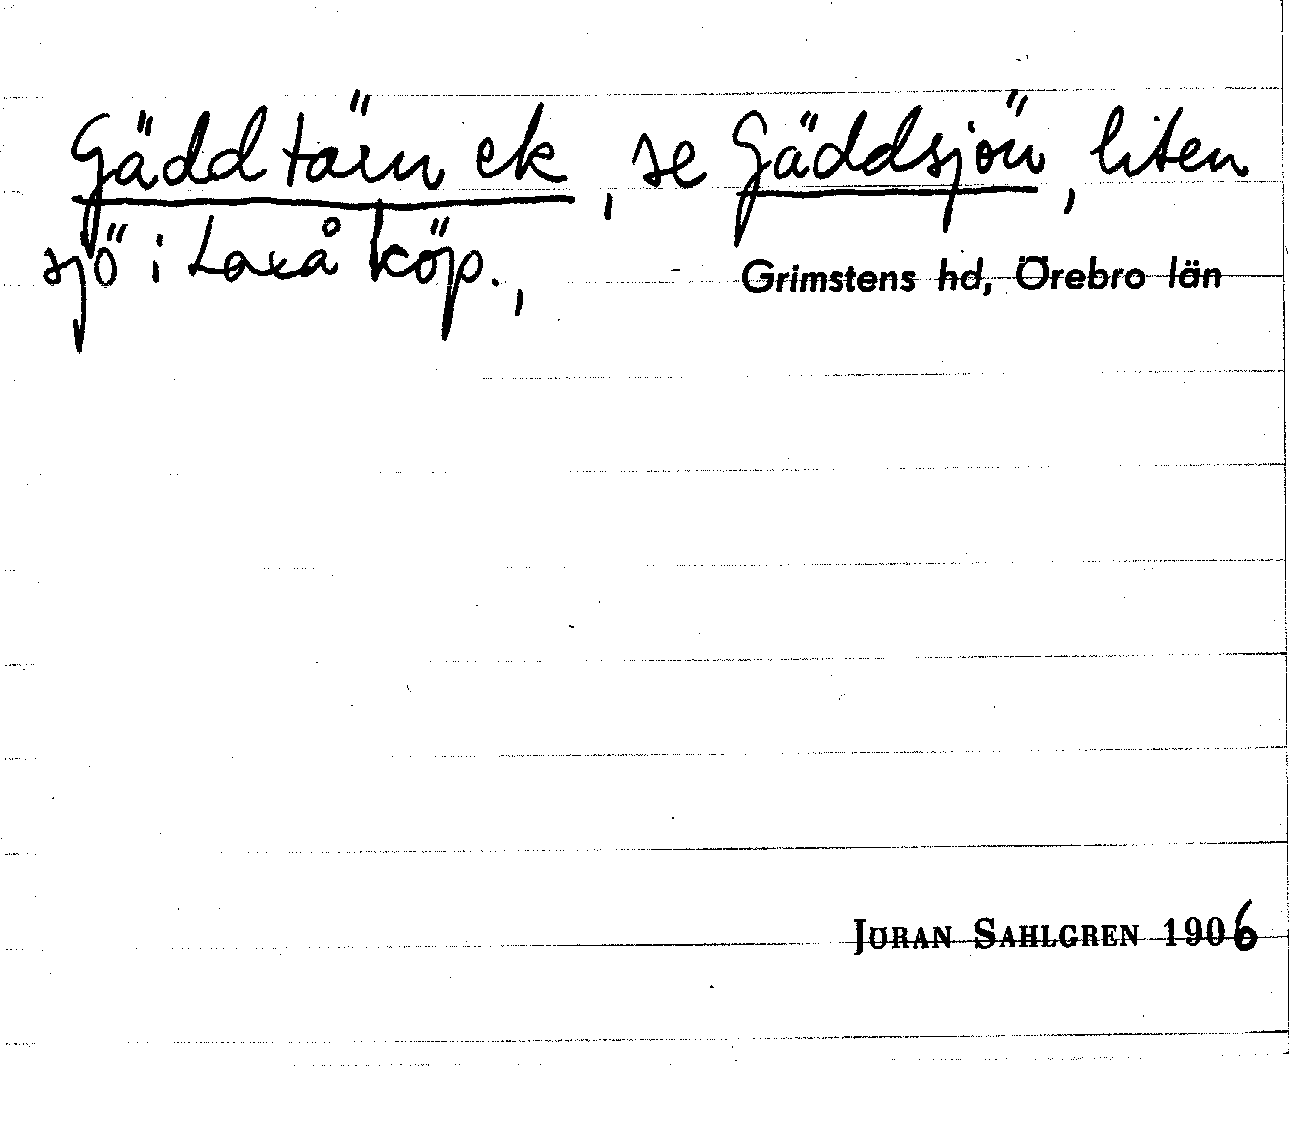 Gäddtärn ek, se Gäddsjön, liten
sjö i Laxå köp., Grimstens hd, Örebro län
JÖRAN SAHLGREN 1906